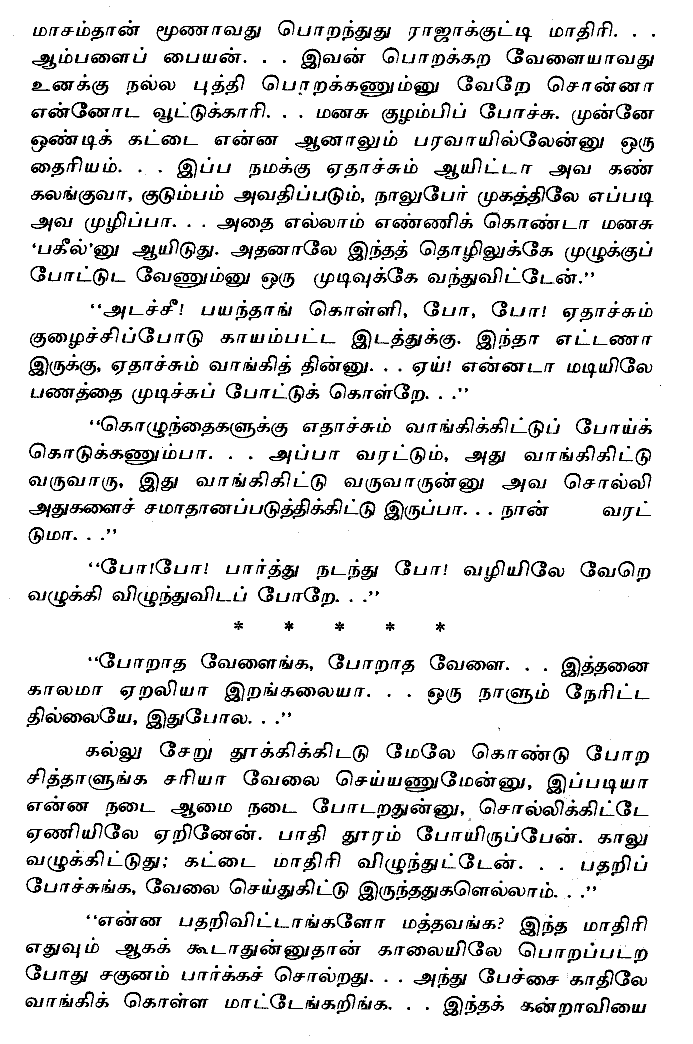 மாசம்தான் மூணாவது பொறந்துது ராஜாக்குட்டி மாதிரி. . .
ஆம்பளைப் பையன். . . இவன் பொறக்கற வேளையாவது
உனக்கு நல்ல புத்தி பொறக்கணும்னு வேறே சொன்னா
என்னோட வூட்டுக்காரி. . . மனசு குழம்பிப் போச்சு. முன்னே
ஒண்டிக் கட்டை என்ன ஆனாலும் பரவாயில்லேன்னு ஒரு
தைரியம். . . இப்ப நமக்கு ஏதாச்சும் ஆயிட்டா அவ கண்
கலங்குவா, குடும்பம் அவதிப்படும், நாலுபேர் முகத்திலே எப்படி
அவ முழிப்பா. . . அதை எல்லாம் எண்ணிக் கொண்டா மனசு
‘பகீல்’னு ஆயிடுது. அதனாலே இந்தத் தொழிலுக்கே முழுக்குப்
போட்டுட வேணும்னு ஒரு முடிவுக்கே வந்துவிட்டேன்.”
“அடச்சீ! பயந்தாங் கொள்ளி, போ, போ! ஏதாச்சும்
குழைச்சிப்போடு காயம்பட்ட இடத்துக்கு. இந்தா எட்டணா
இருக்கு, ஏதாச்சும் வாங்கித் தின்னு. . . ஏய்! என்னடா மடியிலே
பணத்தை முடிச்சுப் போட்டுக் கொள்றே. . .”
“கொழுந்தைகளுக்கு எதாச்சும் வாங்கிக்கிட்டுப் போய்க்
கொடுக்கணும்பா. . . அப்பா வரட்டும், அது வாங்கிகிட்டு
வருவாரு, இது வாங்கிகிட்டு வருவாருன்னு அவ சொல்லி
அதுகளைச் சமாதானப்படுத்திக்கிட்டு இருப்பா. . . நான் வரட்
டுமா. . .”
“போ!போ! பார்த்து நடந்து போ! வழியிலே வேறெ
வழுக்கி விழுந்துவிடப் போறே. . .”
* * * * *
“போறாத வேளைங்க, போறாத வேளை. . . இத்தனை
காலமா ஏறலியா இறங்கலையா. . . ஒரு நாளும் நேரிட்ட
தில்லையே, இதுபோல. . .”
கல்லு சேறு தூக்கிக்கிடடு மேலே கொண்டு போற
சித்தாளுங்க சரியா வேலை செய்யணுமேன்னு, இப்படியா
என்ன நடை ஆமை நடை போடறதுன்னு, சொல்லிக்கிட்டே
ஏணியிலே ஏறினேன். பாதி தூரம் போயிருப்பேன். காலு
வழுக்கிட்டுது; கட்டை மாதிரி விழுந்துட்டேன். . . பதறிப்
போச்சுங்க, வேலை செய்துகிட்டு இருந்ததுகளெல்லாம். . .”
“என்ன பதறிவிட்டாங்களோ மத்தவங்க? இந்த மாதிரி
எதுவும் ஆகக் கூடாதுன்னுதான் காலையிலே பொறப்படற
போது சகுனம் பார்க்கச் சொல்றது. . . அந்து பேச்சை காதிலே
வாங்கிக் கொள்ள மாட்டேங்கறிங்க. . . இந்தக் கன்றாவியை